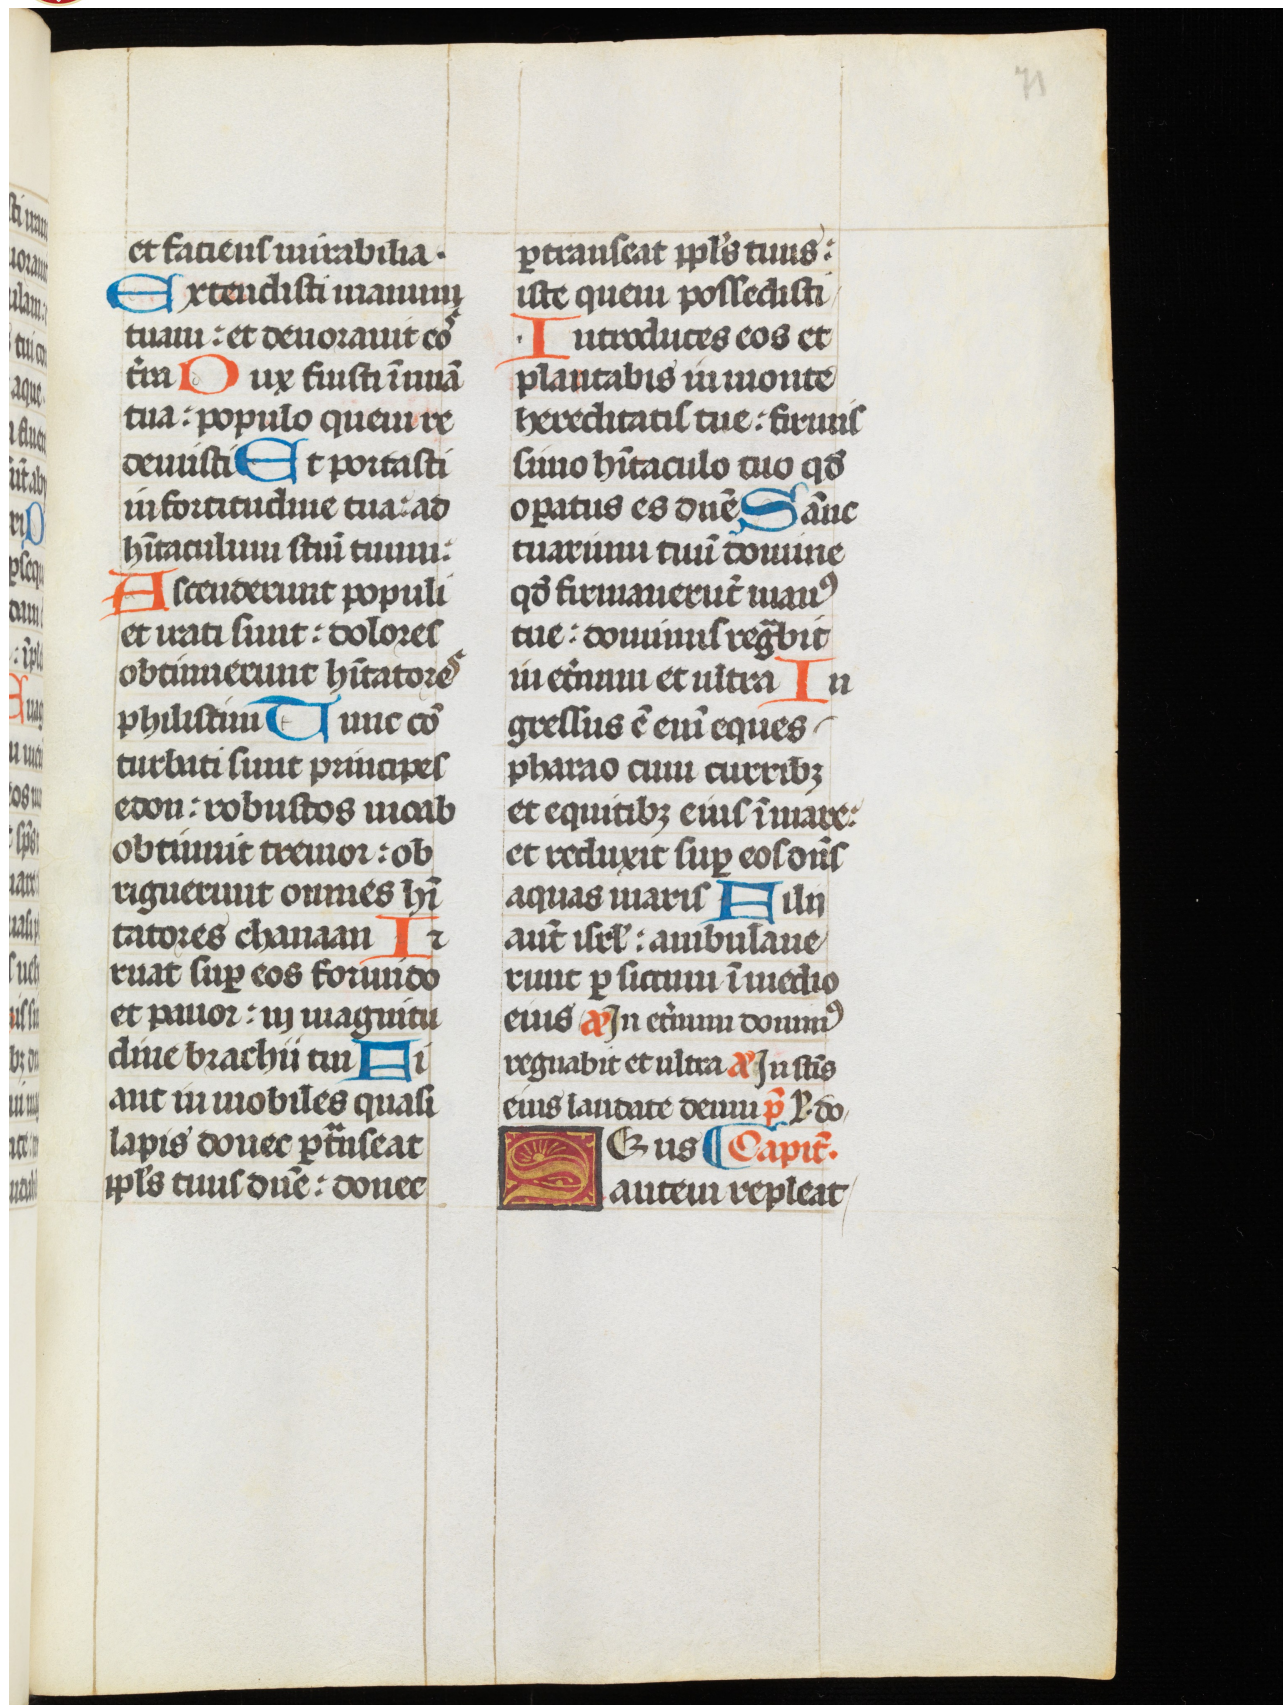 71
et faciens mirabilia.
Extendisti manum
tuam : et deuorauit eos
t̾ra Dux fuisti ī mīa
tua : populo quem re
demisti Et portasti
in fortitudine tua : ad
hītaculum sc̄m tuum :
Ascenderunt populi
et irati sunt : dolores
obtinuerunt hītatores
philistiim Tunc cō
turbati sunt principes
edon : robustos moab
obtinuit tremor : ob
riguerunt omnes hī
tatores chanaan Ir
ruat suꝑ eos formido
et pauor : in magnitu
dine brachii tui Fi
ant inmobiles quasi
lapis donec ꝑtn̄seat
ppl̄s tuus dn̄e : donec
ꝑtranseat ppl̄s tuus :
iste quem possedisti
Introduces eos et
plantabis in monte
hereditatis tue : firmis
simo hītaculo tuo qd̄
oꝑatus es dn̄e Sānc
tuarium tuū domine
qd̄ firmauerūt manꝰ
tue : dominus regn̄bit
in et̾num et ultra In
gressus ē eni͂ eques
pharao cum curribꝫ
et equitibꝫ eius ī mare :
et reduxit suꝑ eos dn̄s
aquas maris Filii
aut̄ isrl̄ : ambulaue
runt ꝑ siccum ī medio
eius a᷎ In et̾num dominꝰ
regnabit et ultra a᷎ In sc̄is
eius laudate deum p̄ L. do
Eus ¶ Capit̄.
autem repleat